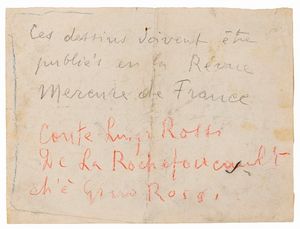 Ces dessins doivent être
publiés en la Révue
Mercure de France
Conte Luigi Rossi
De La Rochefoucault
ch'è Gino Rossi